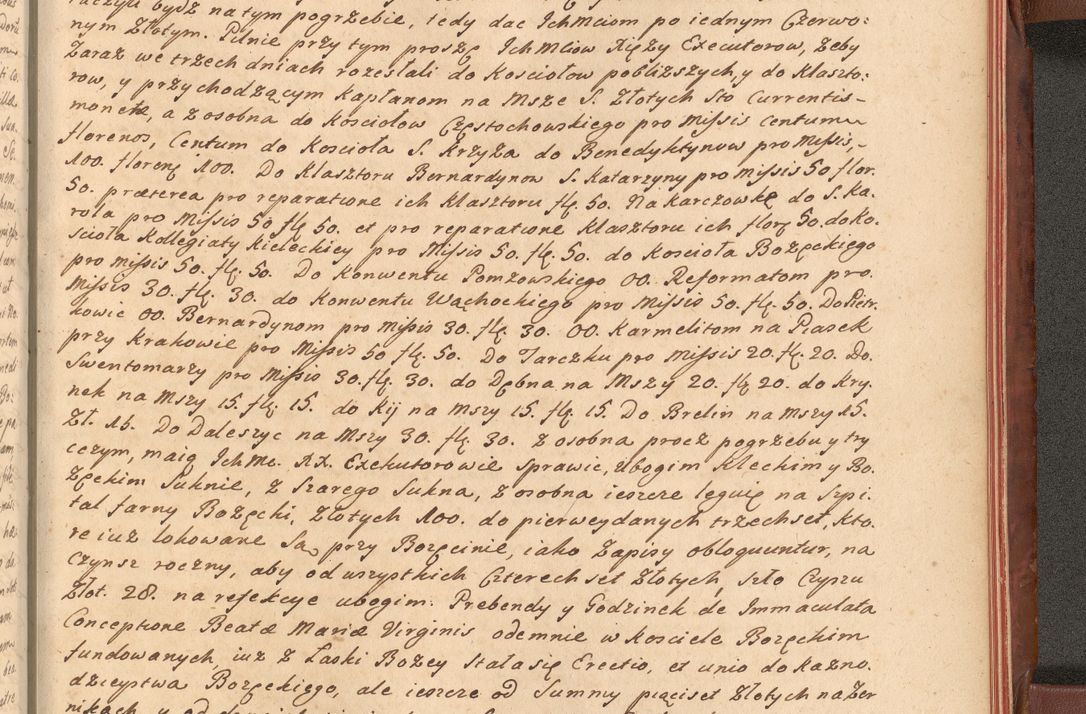 raczyli bydz na tym pogrzebie, tedy dac Ich Mciom po iednym Czerwo:
nym Złotym. Pilnie przy tym proszę Ich Mciow Xięży Executorow, żeby
Zaraz we trzech dniach rozesłali do Kosciołow poblizszych, y do Klaszto:
row, y przychodzącym Kapłanom na Msze S. Złotych sto Currentis
monetæ, a z osobna do Kosciołow Częstochowskiego pro Missis Centum
florenos, Centum do Kościoła S. Krzyża do Benedyktynow pro Missis,
100. florenę 100. Do Klasztoru Bernardynow S. Katarzyny pro Missis 50 flor.
50. præterea pro reparatione ich Klasztoru flę. 50. Na Karczowkę do S. Ka.
rola pro Missis 50 flę 50. et pro reparatione Klasztoru ich florę 50. do Ko.
scioła Kollegiaty Kieleckiey pro Missis 50. flę. 50. do Kościoła Bozęckiego
pro Missis 50. flę. 50. Do Konwentu Pomzowskiego OO. Reformatom pro.
Missis 30. flę. 30. do Konwentu Wąchockiego pro Missis 50. flę. 50. Do Pietr.
kowic OO. Bernardynom pro Missis 30. flę. 30. OO. Karmelitom na Piasek
przy Krakowie pro Missis 50 flę. 50. Do Tarczku pro Missis 20. flę. 20. Do.
Swentomarzy pro Missis 30. flę. 30. do Dębna na Mszy 20. flę 20. do Kry.
nek na Mszy 15. flę. 15. do Kij na Mszy 15. flę. 15. Do Brelin na Mszy 15.
Zł. 15. Do Daleszyc na Mszy 30. flę. 30. z osobna procz pogrzebu y try
cezym, maią Ich Mc. XX. Exekutorowie sprawic, ubogim Kleckim y Bo.
Zęckim Suknie, z Szarego Sukna, z osobna ieszcze leguię na Szpi.
tal farny Bozęcki, Złotych 100. do pierwey danych trzechset, kto.
re iuż lokowane Są przy Bozęcinie, iako Zapisy obloquuntur, na
Czynsz roczny, aby od wszystkich Czterech set Złotych, szło Czyszu
Złot. 28. na refekcye ubogim. Prebendy y Godzinek de Immaculata
Conceptione Beatæ Mariæ Virginis odemnie w Kosciele Bozęckim
fundowanych, iuż z Łaski Bożey stała się Erectio, et unio do Kazno.
dzieystwa Bozęckiego, ale ieszcze od Summy pięciset Złotych na Zer